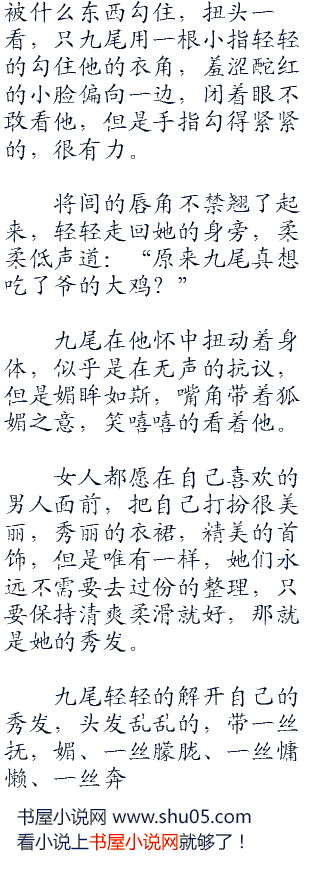 被什么东西勾住，扭头一
看，只九尾用一根小指轻轻
的勾住他的衣角，羞涩酡红
的小脸偏向一边，闭着眼不
敢看他，但是手指勾得紧紧
的，很有力。
将闾的唇角不禁翘了起
来，轻轻走回她的身旁，柔
柔低声道：“原来九尾真想
吃了爷的大鸡？”
九尾在他怀中扭动着身
体，似乎是在无声的抗议，
但是媚眸如斯，嘴角带着狐
媚之意，笑嘻嘻的看着他。
女人都愿在自己喜欢的
男人面前，把自己打扮很美
丽，秀丽的衣裙，精美的首
饰，但是唯有一样，她们永
远不需要去过份的整理，只
要保持清爽柔滑就好，那就
是她的秀发。
九尾轻轻的解开自己的
秀发，头发乱乱的，带一丝
抚，媚、一丝朦胧、一丝慵
懒、一丝奔
书屋小说网 www.shu05.com
看小说上书屋小说网就够了！